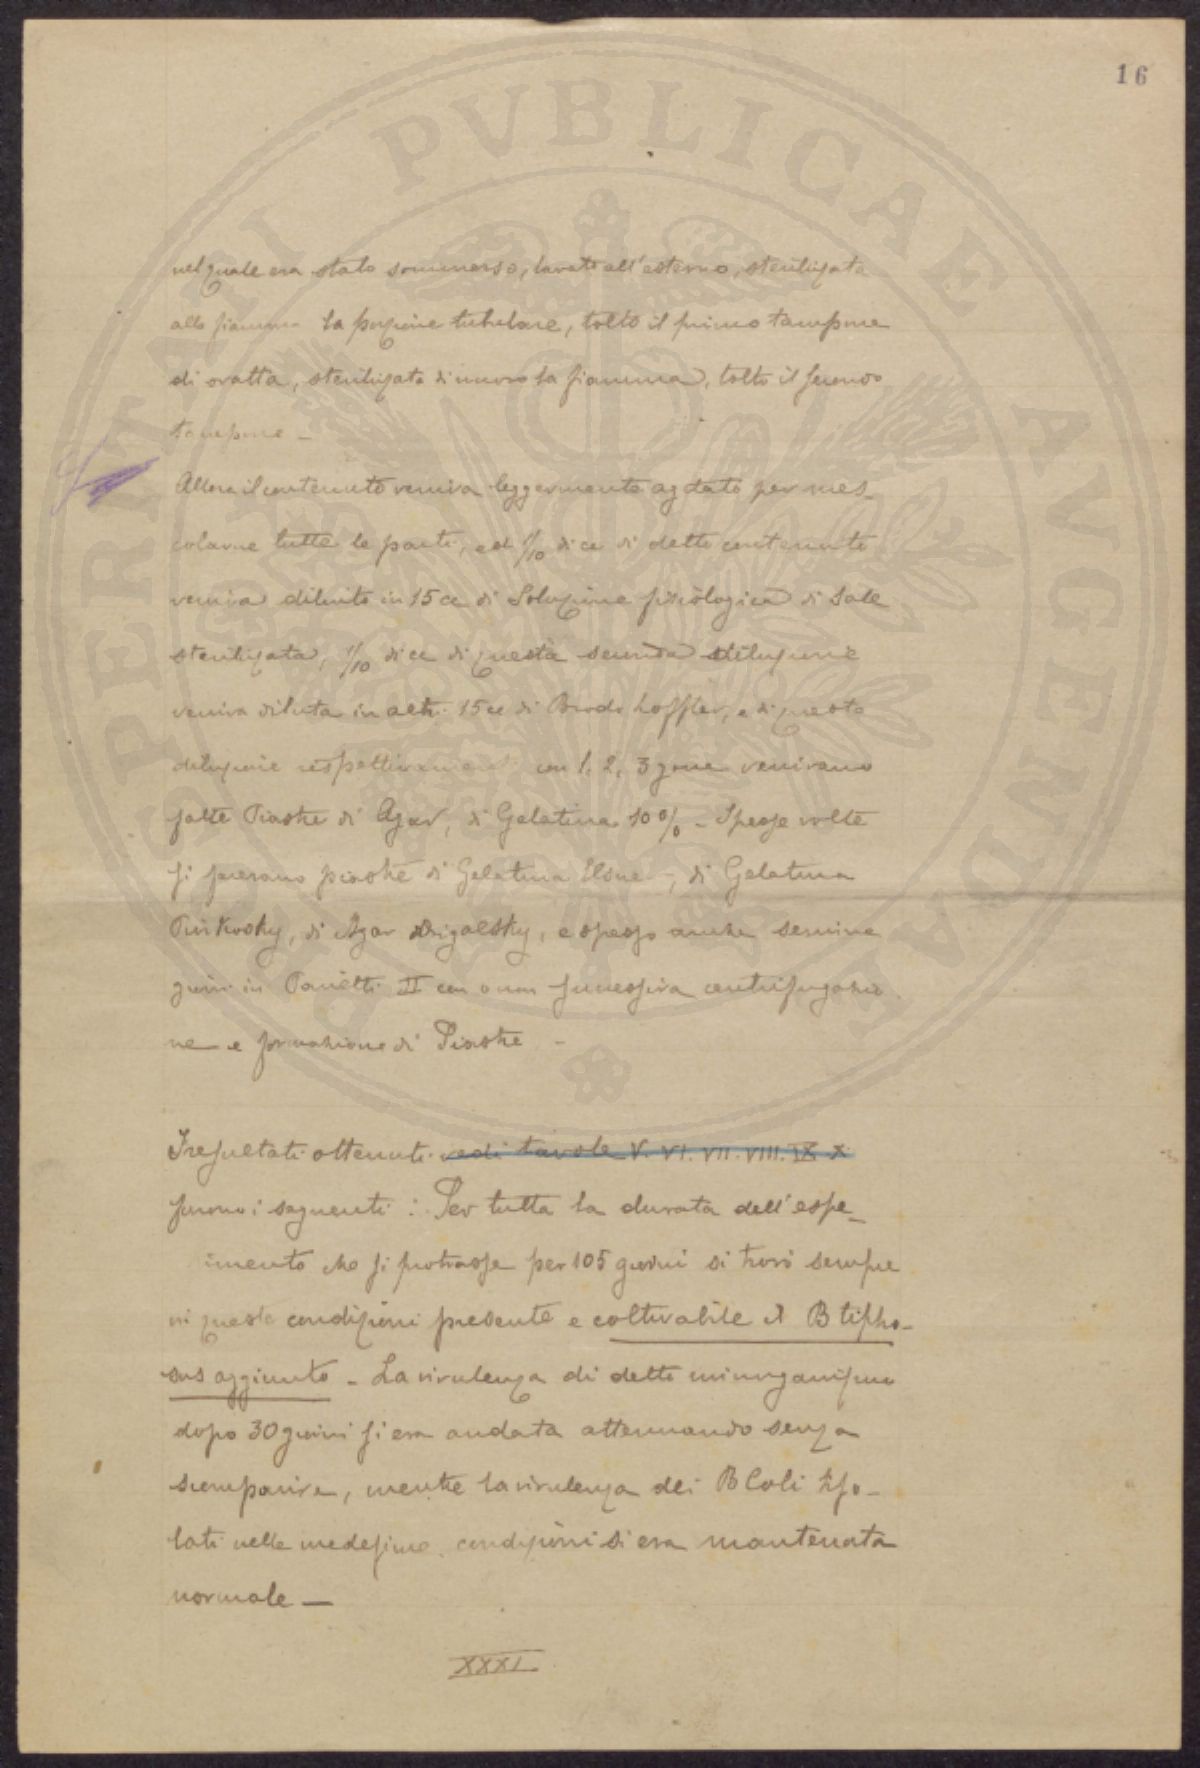 16
nel quale era stato sommerso, lavato all'esterno, sterilizzata
alla fiamma la porzione tubulare, tolto il primo tampone
di ovatta, sterilizzato di nuovo la fiamma, tolto il secondo
tampone –
Allora il contenuto veniva leggermente agitato per mes-
colarne tutte le parti, ed 1/10 di cc di detto contenuto
veniva diluito in 15 cc di Soluzione fisiologica di Sale
sterilizzata, 1/10 di cc di questa seconda diluzione
veniva diluita in altri 15 cc di Brodo Loffler, e di questa
diluzione respettivamente con 1, 2, 3 gocce venivano
fatte Piastre di Agar, di Gelatina 10% – Spesse volte
si facevano piastre di Gelatina Elsner, di Gelatina
Piorkosky, di Agar Drigalsky, e spesso anche semina
gioni in II con o non successiva centrifugazio
ne e formazione di Piastre –
I resultati ottenuti vedi tavole V. VI. VII. VIII. IX. X
furono i seguenti : Per tutta la durata dell'espe-
imento che si protrasse per 105 giorni si trovò sempre
in queste condizioni presente e coltivabile il B tipho-
sus aggiunto – La virulenza di detto microrganismo
dopo 30 giorni si era andata attenuando senza
scomparire, mentre la virulenza dei B Coli Iso-
lati nelle medesime condizioni si era mantenuta
normale –
XXXI
PROSPERITATI PVBLICAE AVGENDAE